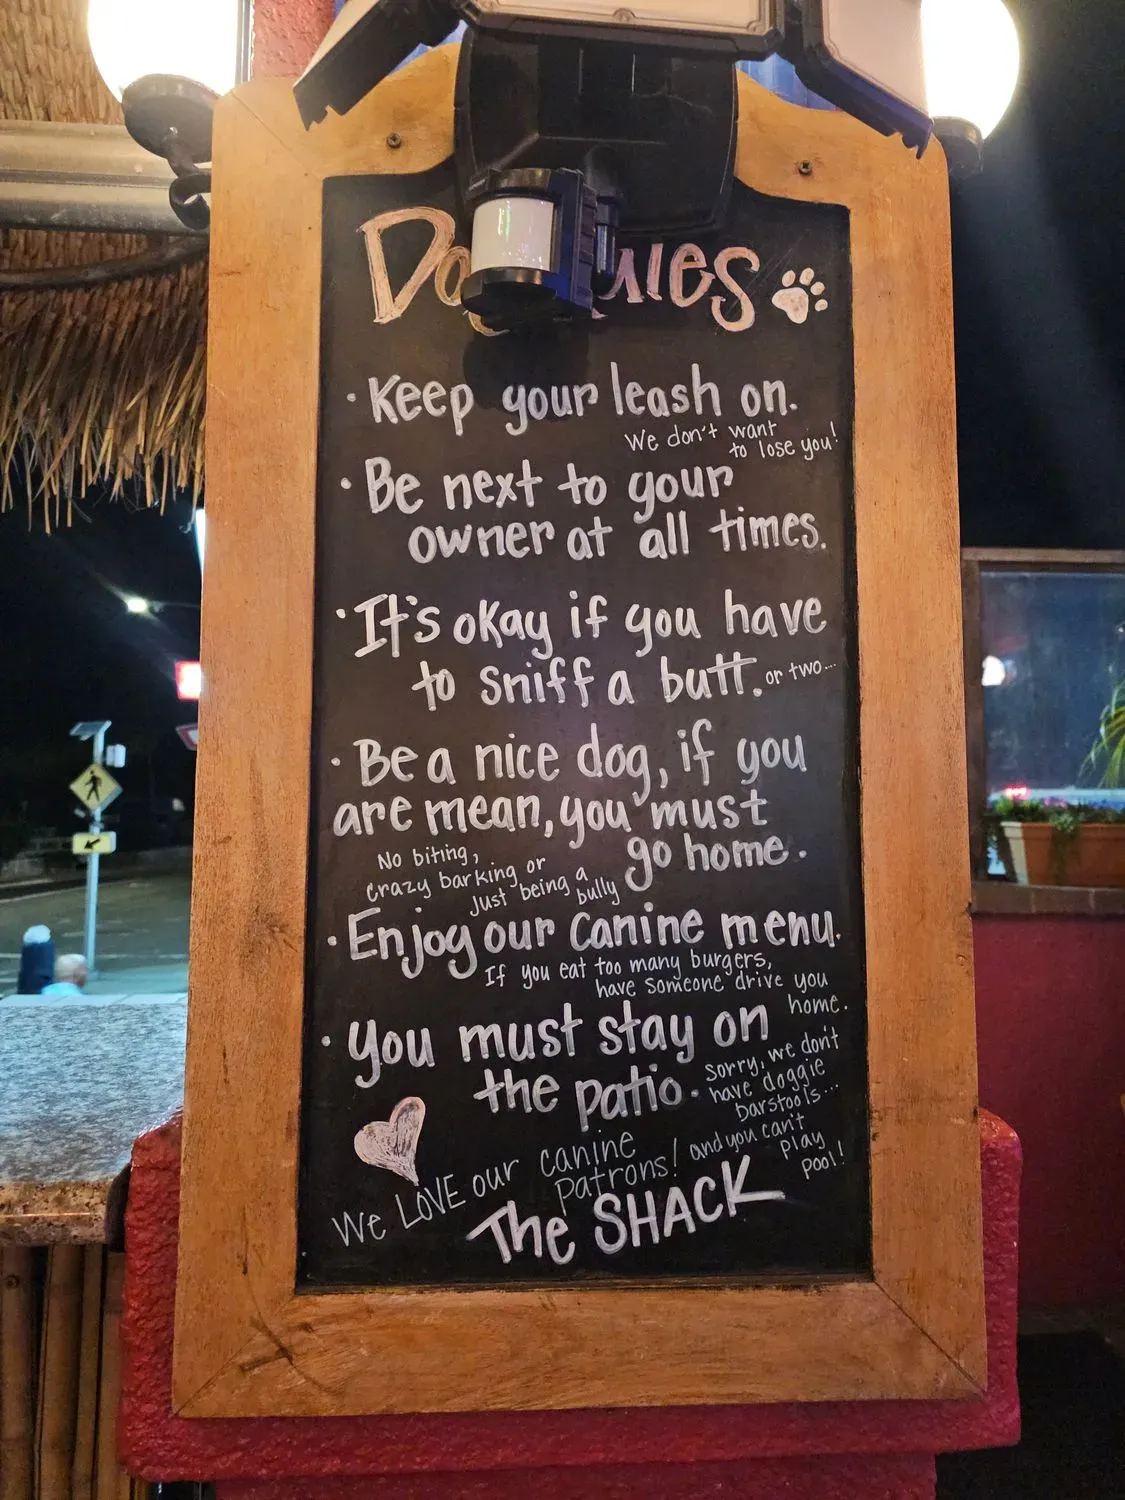 · Keep your leash on.
We don't want
to lose you!
· Be next to your
owner at all times.
· It's okay if you have
to sniff a butt. or two...
· Be a nice dog, if you
are mean, you must
go home.
No biting,
crazy barking or
just being a
bully
· Enjoy our canine menu.
If you eat too many burgers,
have someone drive you
home.
· You must stay on
the patio.
Sorry, we don't
have doggie
barstools...
and you can't
play
pool!
We LOVE our canine
patrons!
The SHACK